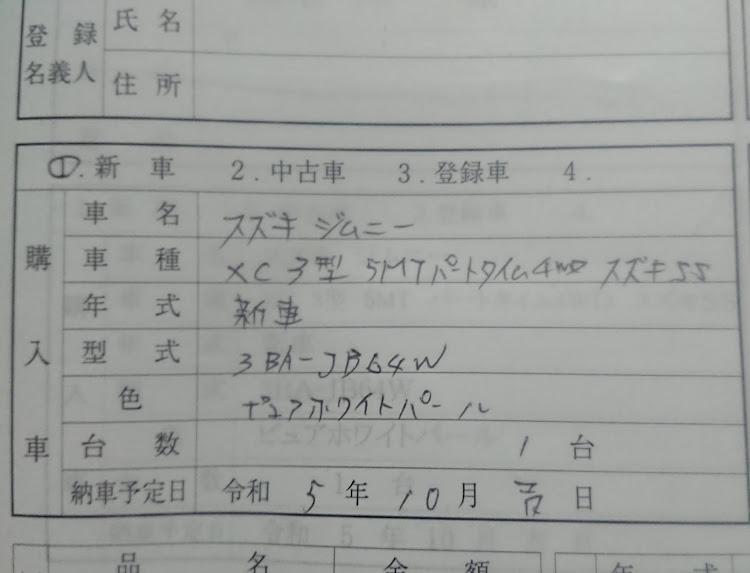 登録名義人
氏名
住所
購入車
①.新車 2.中古車 3.登録車 4.
車名 スズキ ジムニー
車種 XC 3型 5MTパートタイム4WD スズキSS
年式 新車
型式 3BA-JB64W
色 ピュアホワイトパール
台数 1台
納車予定日 令和5年10月吉日
品名 金額
年式